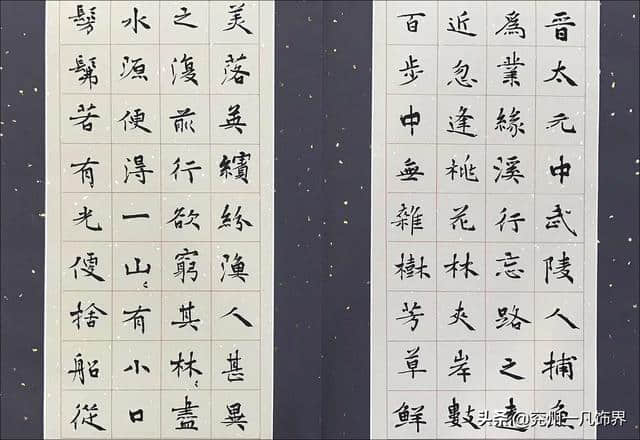 晋太元中武陵人捕魚
爲業緣溪行忘路之遠
近忽逢桃花林夾岸數
百步中無雜樹芳草鮮
美落英繽紛漁人甚異
之復前行欲窮其林〻盡
水源便得一山〻有小口
髣髴若有光便捨船從
头条@兖州一凡饰界